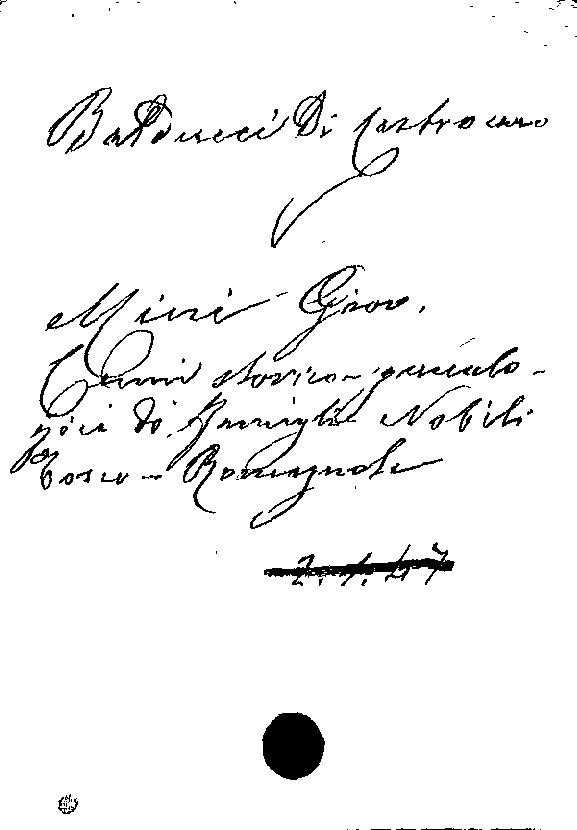 Balducci Di Castrocaro
Mini Giov.
Cenni storico-genealo-
gici di Famiglie Nobili
Tosco-Romagnole
2. 1. 47